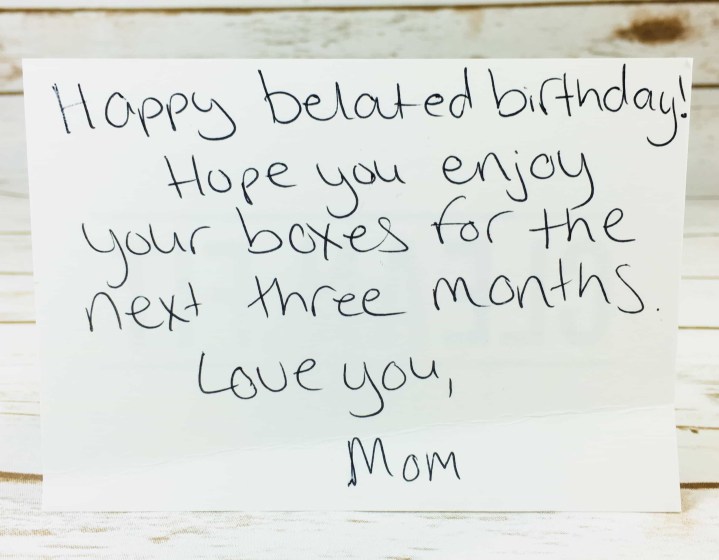 Happy belated birthday!
Hope you enjoy
your boxes for the
next three months.
Love you,
Mom